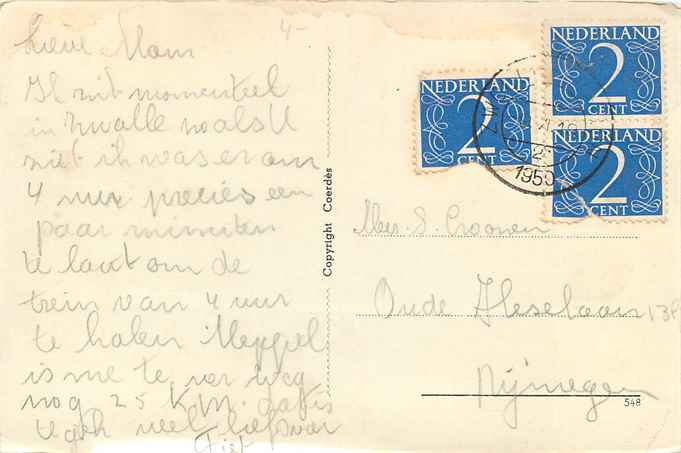 4-
Lieve Mam
Ik zit momenteel
in Zwolle zoals U
ziet ik was er om
4 uur precies een
paar minuten
te laat om de
trein van 4 uur
te halen Meppel
is me te ver weg
nog 25 K.M. dat is
te gek veel liefs van
Copyright Coerdès
NEDERLAND
2
CENT
NEDERLAND
2
CENT
NEDERLAND
2
CENT
1950
Mevr. S. Croonen
Oude Heselaan
Nijmegen
548